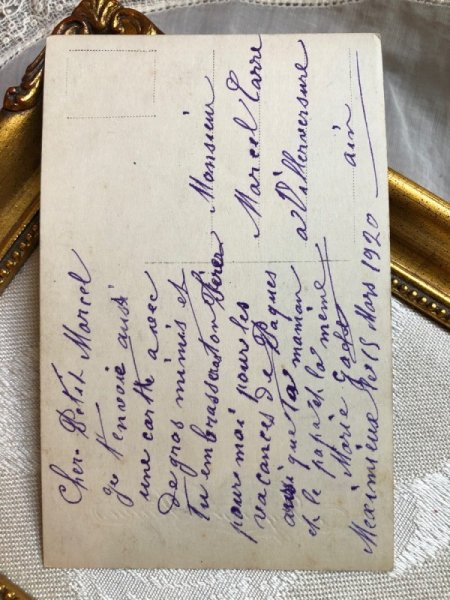 Cher Petit Marcel
je t'envoie aussi
une cartte avec
de gros mimis et
tu embrasseras ton Perer
pour moi pour les
vacances de Paques
aussi que ta maman
et le papa et la même
Marie
Meximieux le 15 Mars 1920
Monsieur
Marcel Carre
a Villerversure
ain